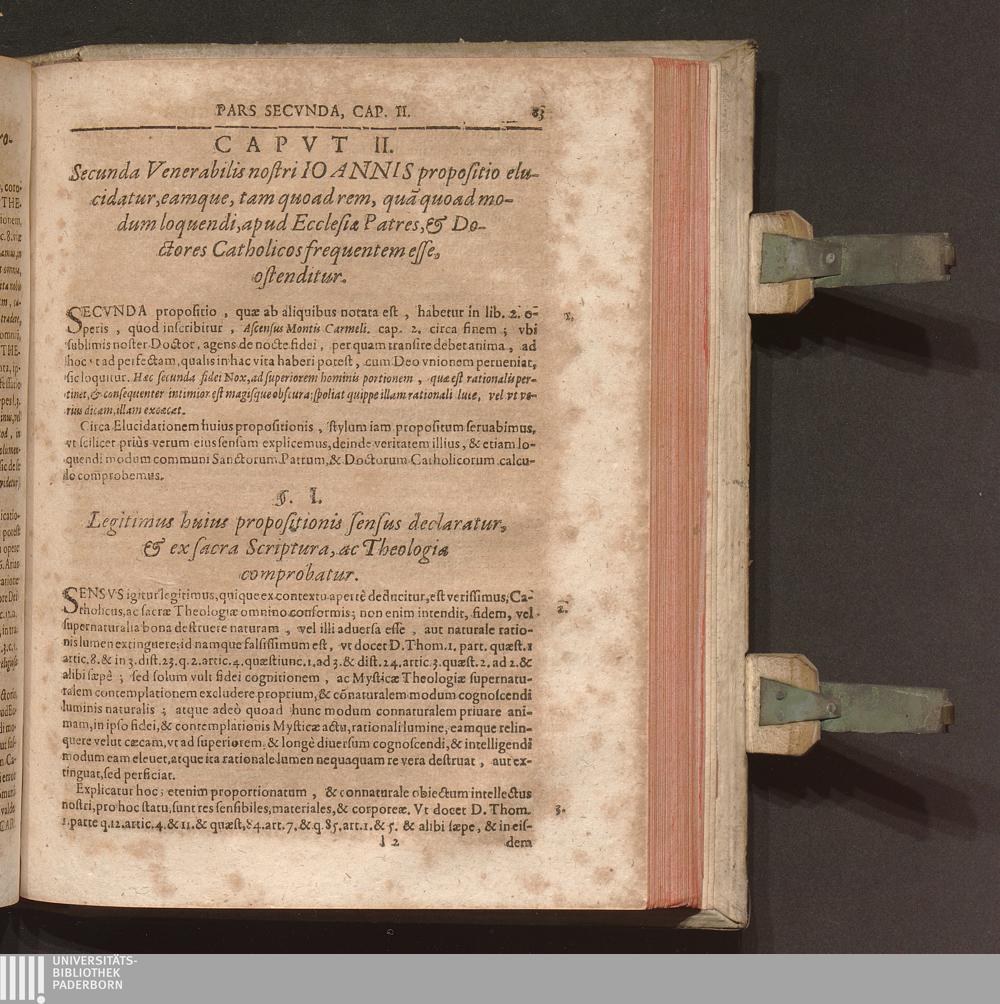 PARS SECVNDA, CAP. II. 83
CAPVT II.
Secunda Venerabilis nostri IOANNIS propositio elu-
cidatur, eamque, tam quoad rem, quã quoad mo-
dum loquendi, apud Ecclesiæ Patres, & Do-
ctores Catholicos frequentem esse,
ostenditur.
SECVNDA propositio, quæ ab aliquibus notata est, habetur in lib. 2. o- 1.
peris, quod inscribitur, Ascensus Montis Carmeli. cap. 2. circa finem; vbi
sublimis noster Doctor, agens de nocte fidei, per quam transire debet anima, ad
hoc vt ad perfectam, qualis in hac vita haberi potest, cum Deo vnionem perueniat,
sic loquitur. Hæc secunda fidei Nox, ad superiorem hominis portionem, quæ est rationalis per-
tinet, & consequenter intimior est magisque obscura; spoliat quippe illam rationali luce, vel vt ve-
rius dicam, illam excæcat.
Circa Elucidationem huius propositionis, stylum iam propositum seruabimus,
vt scilicet priùs verum eius sensum explicemus, deinde veritatem illius, & etiam lo-
quendi modum communi Sanctorum Patrum, & Doctorum Catholicorum calcu-
lo comprobemus.
§. I.
Legitimus huius propositionis sensus declaratur,
& ex sacra Scriptura, ac Theologia
comprobatur.
SENSVS igitur legitimus, quique ex contextu apertè deducitur, est verissimus, Ca-
tholicus, ac sacræ Theologiæ omnino conformis; non enim intendit, fidem, vel 2.
supernaturalia bona destruere naturam, vel illi aduersa esse, aut naturale ratio-
nis lumen extinguere; id namque falsissimum est, vt docet D. Thom. 1. part. quæst. 1
artic. 8. & in 3. dist. 23. q. 2. artic. 4. quæstiunc. 1. ad 3. & dist. 24. artic. 3. quæst. 2. ad 2. &
alibi sæpè; sed solum vult fidei cognitionem, ac Mysticæ Theologiæ supernatu-
ralem contemplationem excludere proprium, & cõnaturalem modum cognoscendi
luminis naturalis; atque adeò quoad hunc modum connaturalem priuare ani-
mam, in ipso fidei, & contemplationis Mysticæ actu, rationali lumine, eamque relin-
quere velut cæcam, vt ad superiorem, & longè diuersum cognoscendi, & intelligendi
modum eam eleuet, atque ita rationale lumen nequaquam re vera destruat, aut ex-
tinguat, sed perficiat.
Explicatur hoc; etenim proportionatum, & connaturale obiectum intellectus
nostri, pro hoc statu, sunt res sensibiles, materiales, & corporeæ. Vt docet D. Thom. 3.
1. parte q. 12. artic. 4. & 11. & quæst. 84. art. 7. & q. 85. art. 1. & 5. & alibi sæpe, & in eis-
l 2 dem
UNIVERSITÄTS-
BIBLIOTHEK
PADERBORN